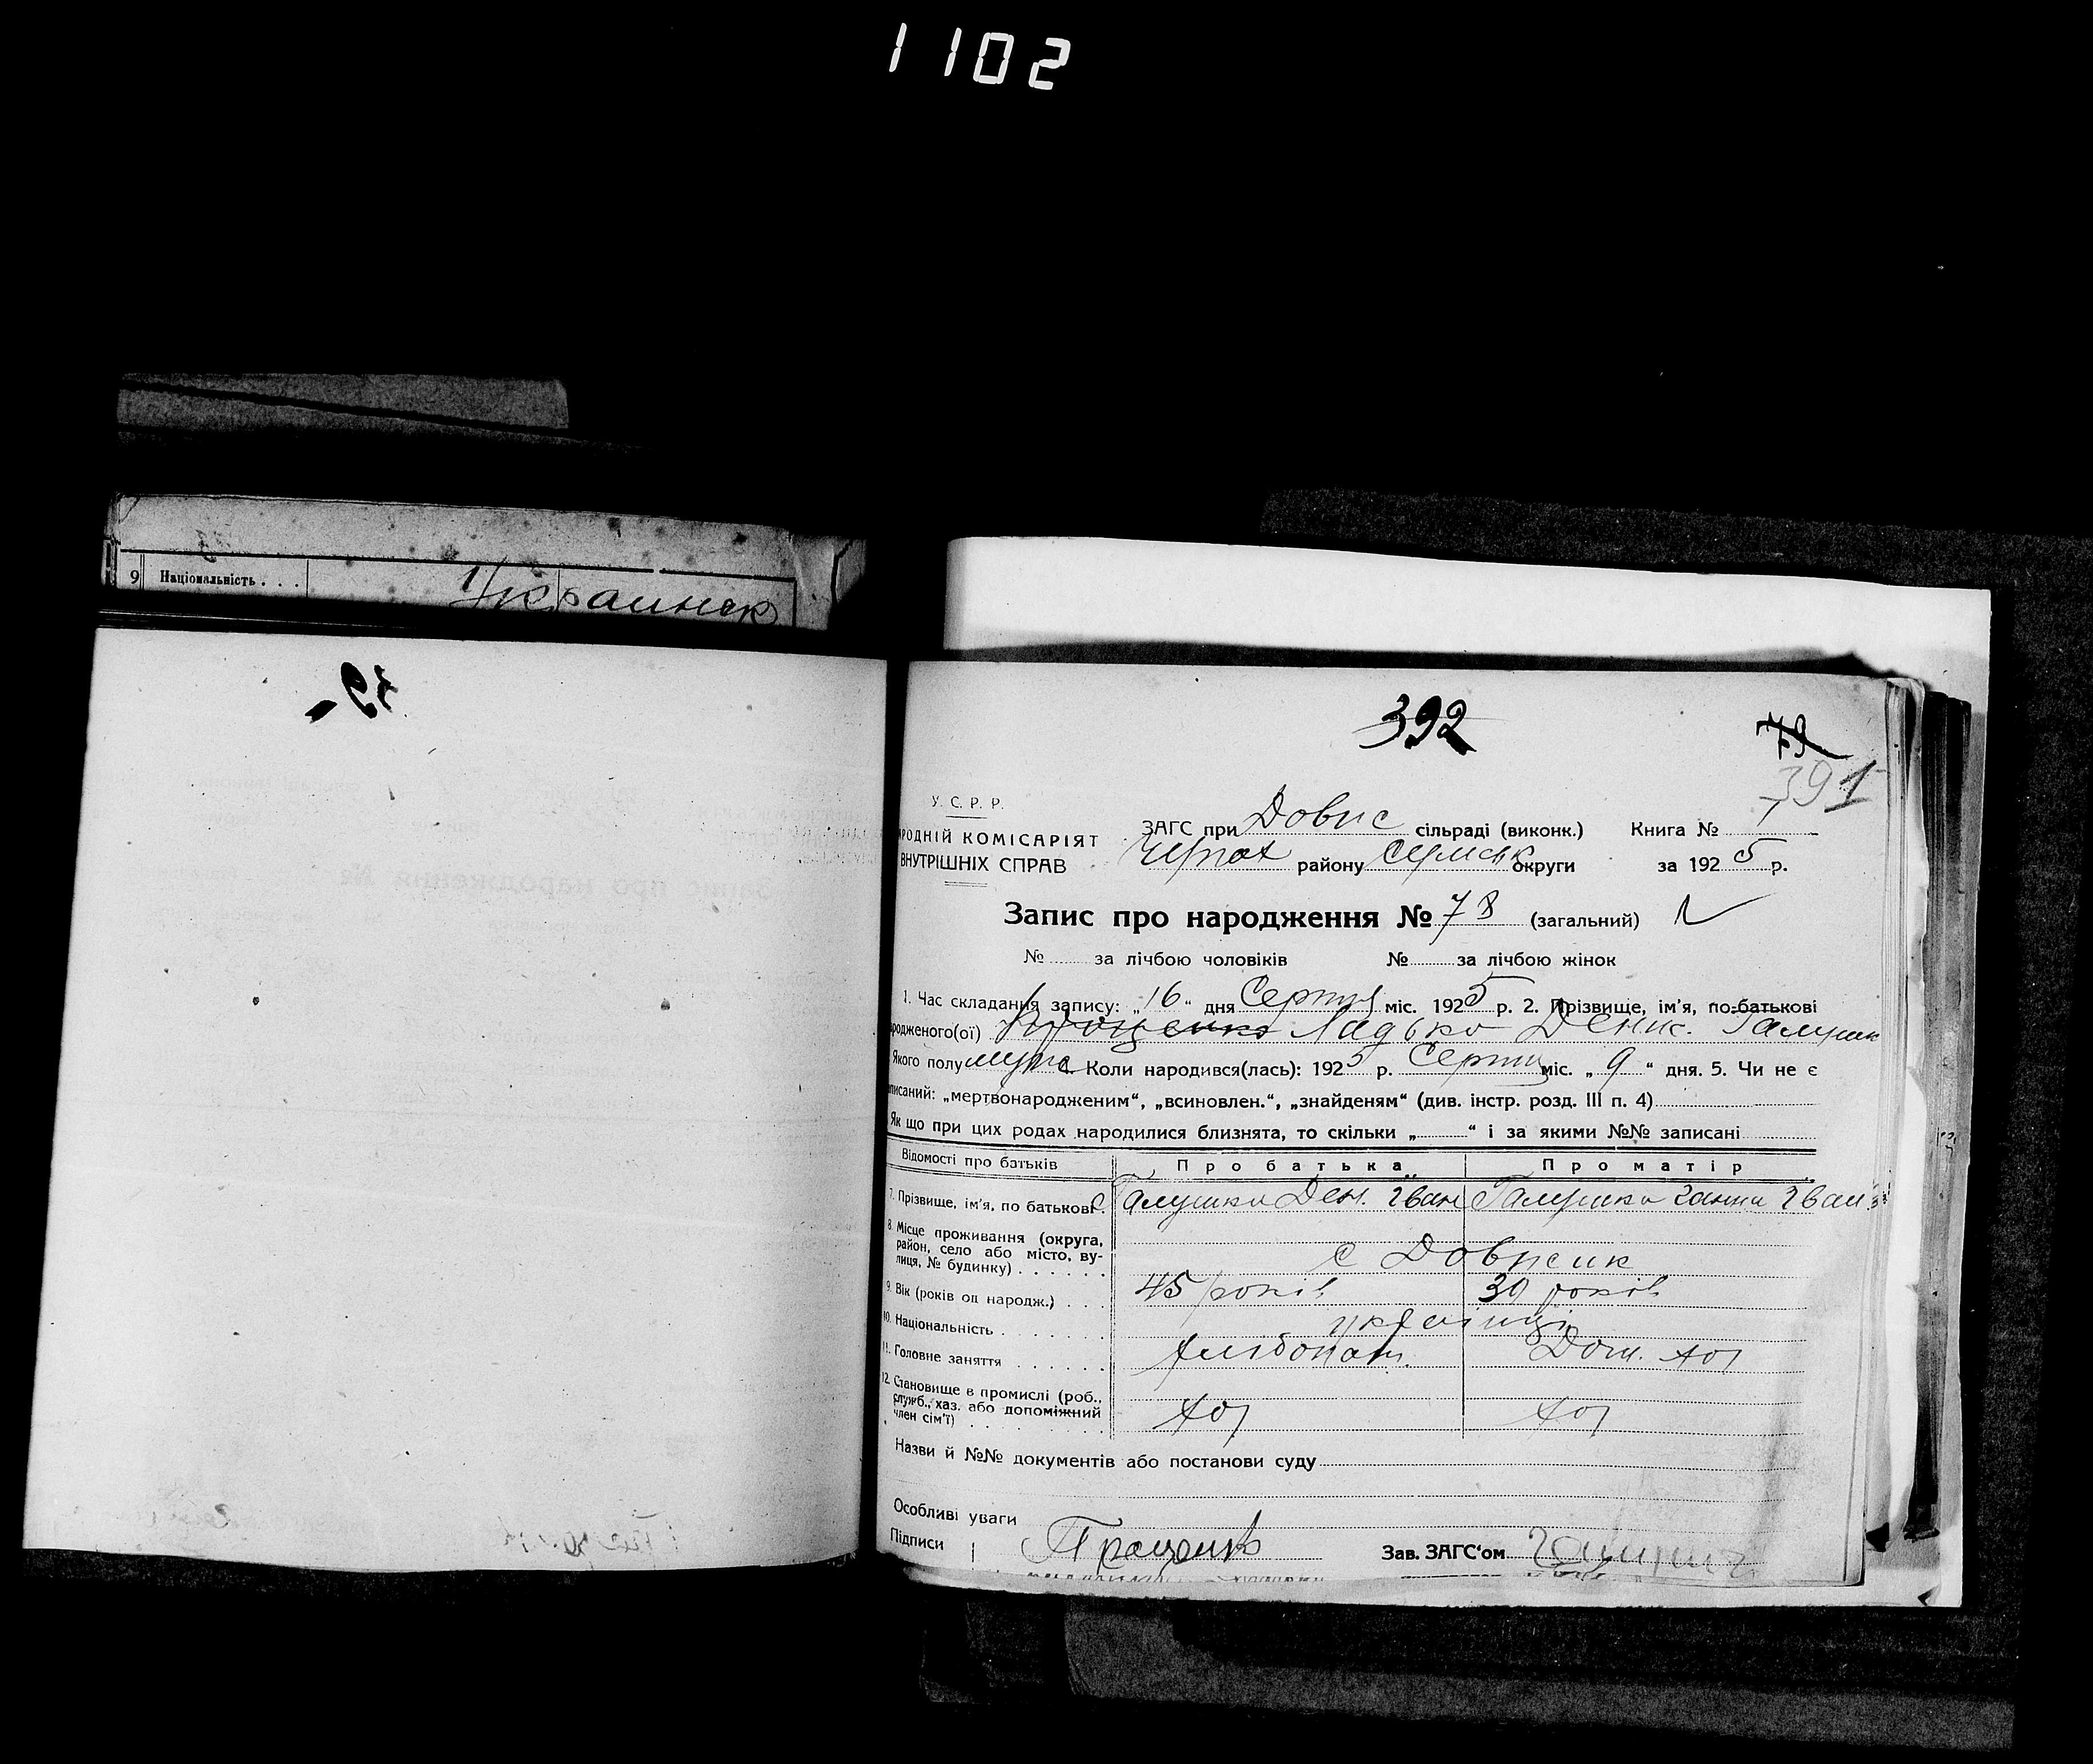 1102
9 Національність . . .
Украинск
392
79
391
У. С. Р. Р.
РОДНІЙ КОМІСАРІЯТ
ВНУТРІШНІХ СПРАВ
ЗАГС при Довпс сільраді (виконк.) Книга № 1
району Сумськ округи за 1925 р.
Запис про народження № 78 (загальний)
№ за лічбою чоловіків № за лічбою жінок
1. Час складання запису: „16“ дня Серпня міс. 1925 р. 2. Прізвище, ім'я, по-батькові
родженого(ої) Денис.
Якого полу муж 4. Коли народився(лась): 1925 р. Серпня міс. „9“ дня. 5. Чи не є
писаний: „мертвонародженим“, „всиновлен.“, „знайденям“ (див. інстр. розд. III п. 4)
Як що при цих родах народилися близнята, то скільки „ “ і за якими №№ записані
Відомості про батьків Про батька Про матір
7. Прізвище, ім'я, по батькові. Галушка Ден. Іван Галушка Ганна Іван
8. Місце проживання (округа,
район, село або місто, ву-
лиця, № будинку) . . . . . . с
9. Вік (років од народж.) . . . 45 років 30 років
10. Національність . . . . . . . українці
11. Головне заняття . . . . . . хлібопаш. Дом. хоз
12. Становище в промислі (роб.,
служб., хаз. або допоміжний
член сім'ї) . . . . . . . . хоз хоз
Назви й №№ документів або постанови суду
Особливі уваги
Підписи Зав. ЗАГС'ом